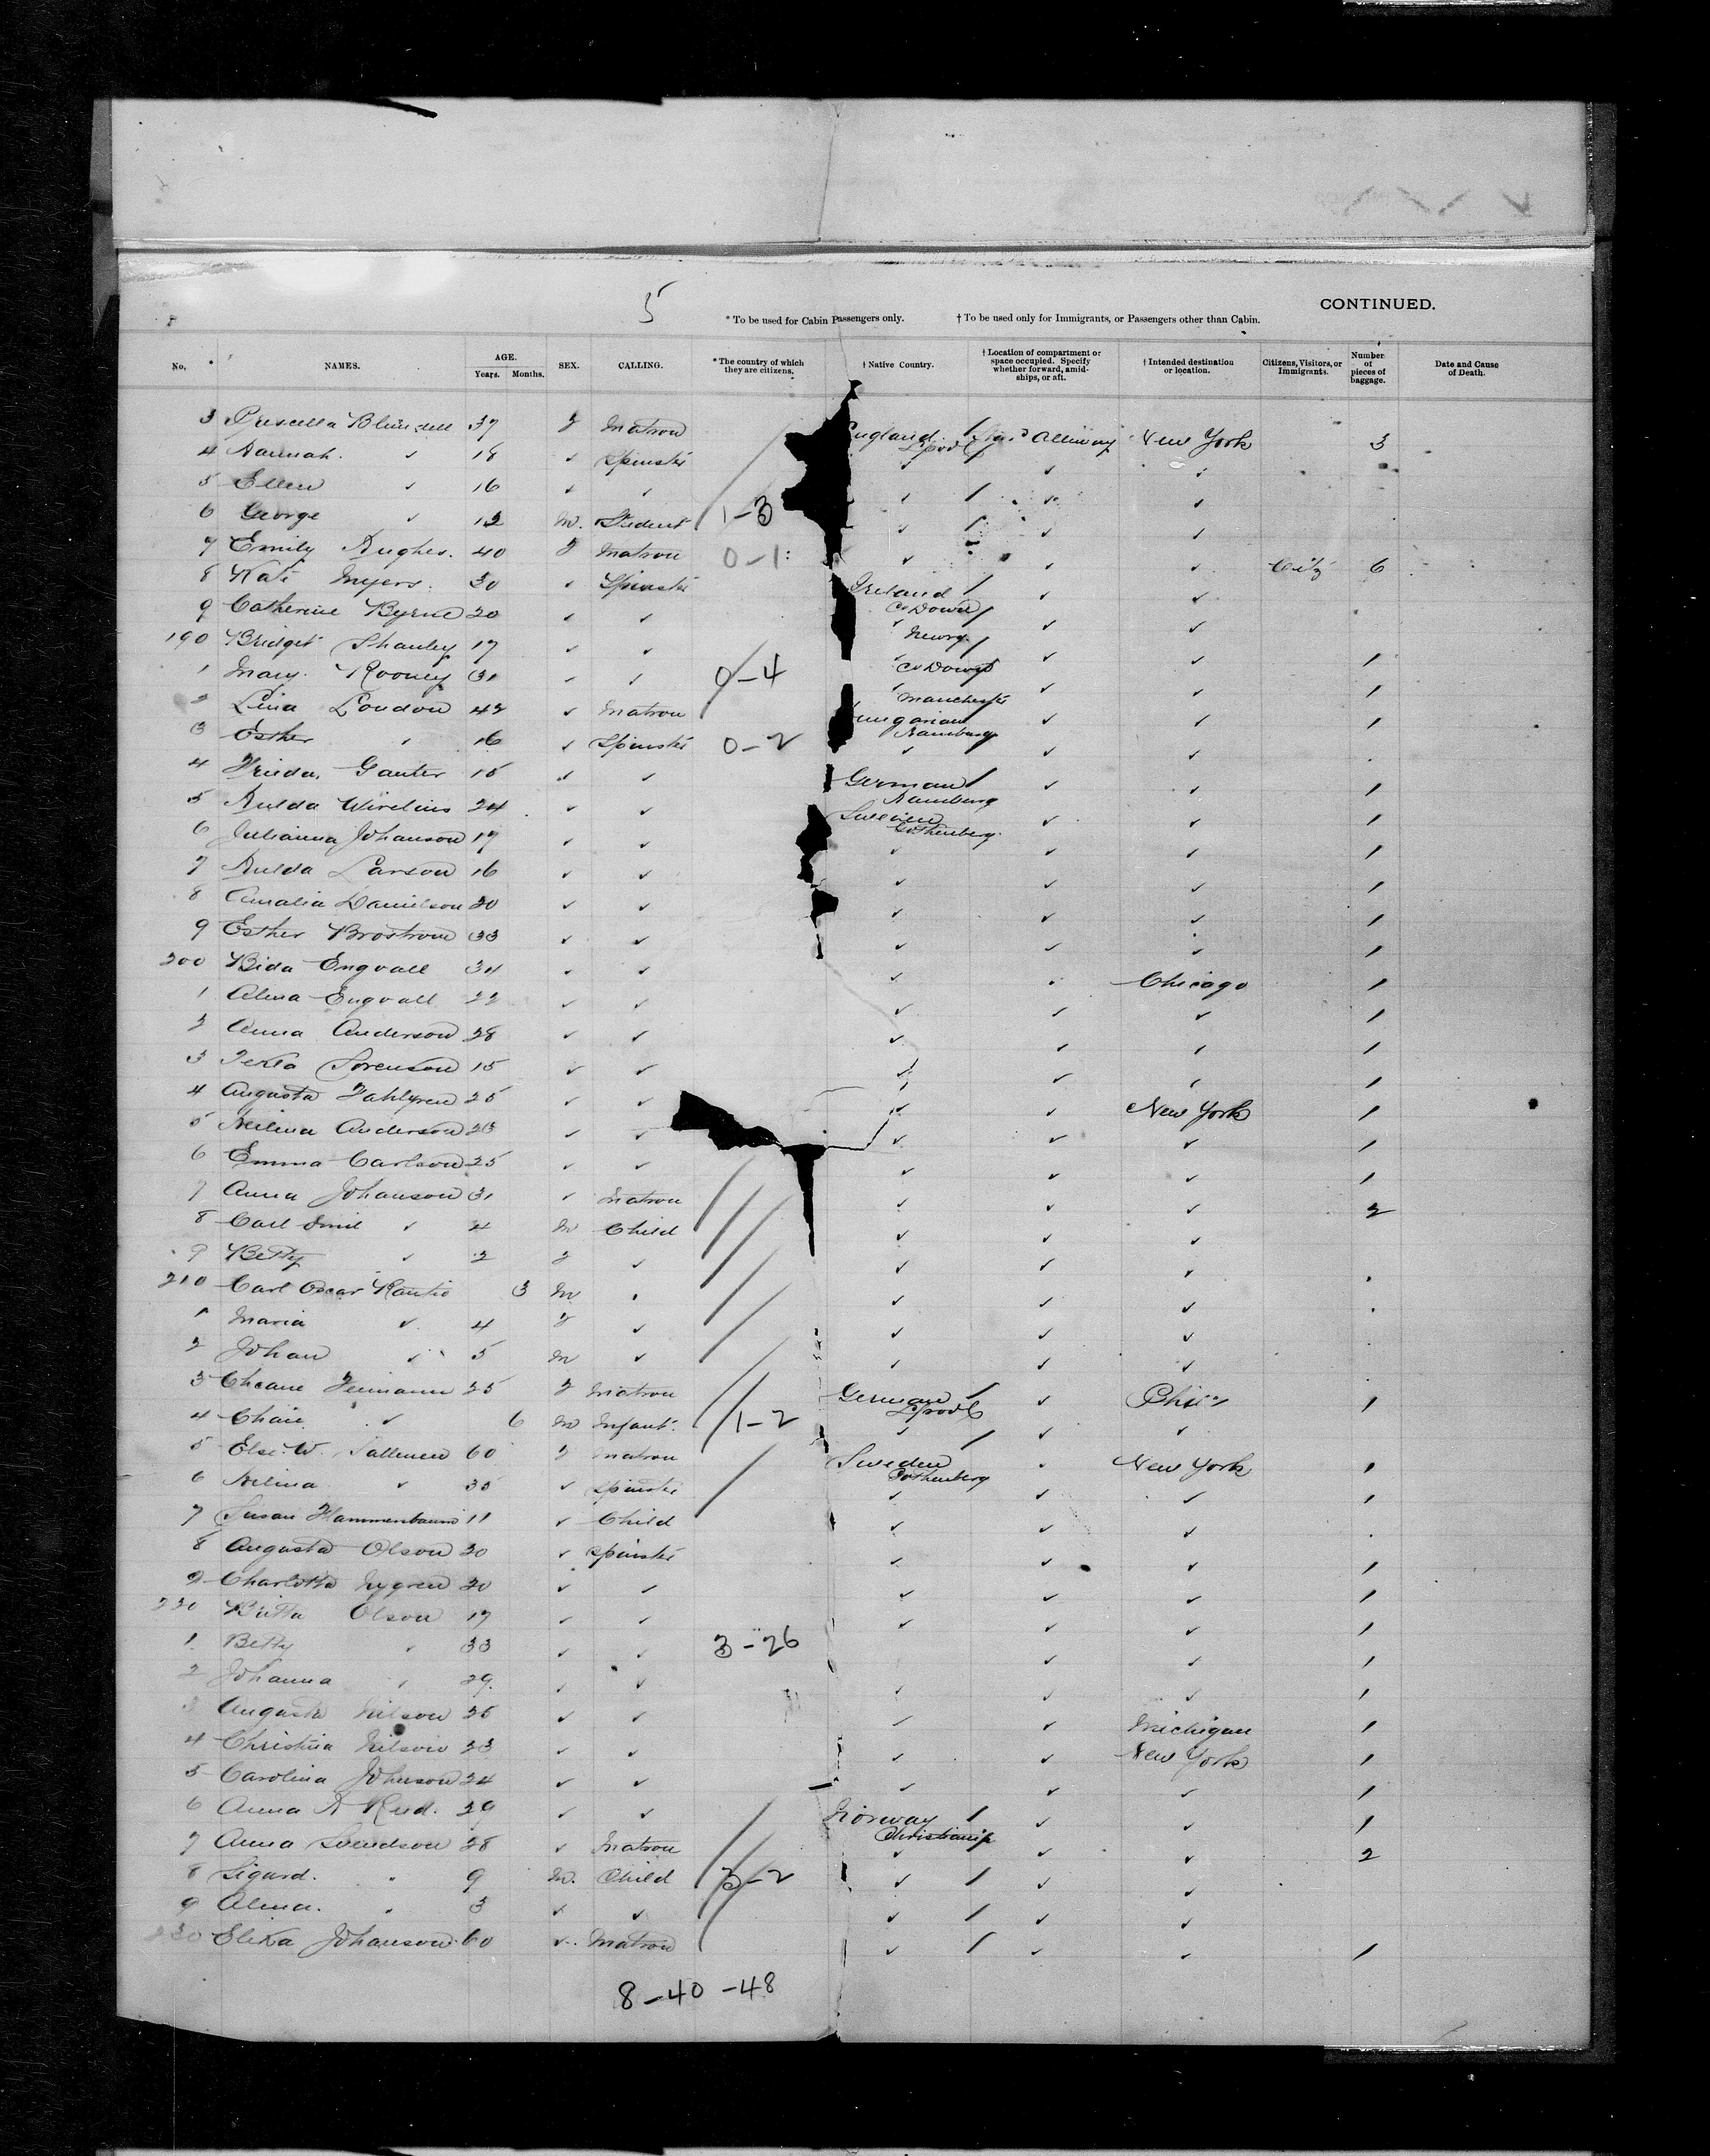 5
* To be used for Cabin Passengers only. † To be used only for Immigrants, or Passengers other than Cabin. CONTINUED.
No. NAMES. AGE. Years. Months. SEX. CALLING. * The country of which they are citizens. † Native Country. † Location of compartment or space occupied. Specify whether forward, amidships, or aft. † Intended destination or location. Citizens, Visitors, or Immigrants. Number of pieces of baggage. Date and Cause of Death.
3 Priscella Blundell 37 F Matron England L'pool New York 3
4 Hannah ✓ 18 ✓ Spinster ✓ ✓ ✓
5 Ellen ✓ 16 ✓ ✓ ✓ ✓ ✓
6 George ✓ 12 M. Student 1-3 ✓ ✓ ✓
7 Emily Hughes. 40 F Matron 0-1 ✓ ✓ ✓ Citz 6
8 Kate Myers. 30 ✓ Spinster Ireland Co Down ✓ ✓
9 Catherine Byrne 20 ✓ ✓ ✓ Newry ✓ ✓
190 Bridget Shanley 17 ✓ ✓ ✓ Co Down ✓ ✓ 1
1 Mary Rooney 31 ✓ ✓ 0-4 ✓ Manchester ✓ ✓ 1
2 Lina London 42 ✓ Matron Hungarian Hamburg ✓ ✓ 1
3 Esther ✓ 16 ✓ Spinster 0-2 ✓ ✓ ✓
4 Frieda Ganter 15 ✓ ✓ German Hamburg ✓ ✓ 1
5 Hulda 24 ✓ ✓ Sweden Gothenberg ✓ ✓ 1
6 Julianna Johanson 17 ✓ ✓ ✓ ✓ ✓ 1
7 Hulda Larson 16 ✓ ✓ ✓ ✓ ✓ 1
8 Amalia Danielson 20 ✓ ✓ ✓ ✓ ✓ 1
9 Esther Brostrom 33 ✓ ✓ ✓ ✓ ✓ 1
200 Bida Engvall 34 ✓ ✓ ✓ ✓ Chicago 1
1 Alma Engvall 22 ✓ ✓ ✓ ✓ ✓ 1
2 Anna Anderson 28 ✓ ✓ ✓ ✓ ✓ 1
3 Tekla Sorenson 15 ✓ ✓ ✓ ✓ ✓ 1
4 Augusta Fahlgren 25 ✓ ✓ ✓ ✓ New York 1
5 Anderson 23 ✓ ✓ ✓ ✓ ✓ 1
6 Emma Carlson 25 ✓ ✓ ✓ ✓ ✓ 1
7 Anna Johanson 31 ✓ Matron ✓ ✓ ✓ 2
8 Carl Emil ✓ 4 M Child ✓ ✓ ✓
9 Betty ✓ 2 F ✓ ✓ ✓ ✓
210 Carl Oscar 3 M ✓ ✓ ✓ ✓
1 Maria ✓ 4 F ✓ ✓ ✓ ✓
2 Johan ✓ 5 M ✓ ✓ ✓ ✓
3 25 F Matron German L'pool ✓ 1
4 Chaie ✓ 6 M Infant. 1-2 ✓ ✓ ✓
5 Else W. 60 F Matron Sweden Gothenberg ✓ New York 1
6 ✓ 35 ✓ Spinster ✓ ✓ ✓ 1
7 Susan 11 ✓ Child ✓ ✓ ✓
8 Augusta Olson 20 ✓ Spinster ✓ ✓ ✓ 1
9 Charlotta Nygren 20 ✓ ✓ ✓ ✓ ✓ 1
220 Britta Olson 17 ✓ ✓ ✓ ✓ ✓ 1
1 Betty ✓ 33 ✓ ✓ 3-26 ✓ ✓ 1
2 Johanna ✓ 29 ✓ ✓ ✓ ✓ ✓ 1
3 Augusta Nilson 25 ✓ ✓ ✓ ✓ Michigan 1
4 Christina Nilson 23 ✓ ✓ ✓ ✓ New York 1
5 Carolina Johnson 24 ✓ ✓ ✓ ✓ ✓ 1
6 Anna 29 ✓ ✓ Norway Christiania ✓ ✓ 1
7 Anna Svendson 28 ✓ Matron ✓ ✓ ✓ 2
8 Sigurd. " 9 M. Child 3-2 ✓ ✓ ✓
9 Alma. " 3 ✓ ✓ ✓ ✓ ✓
230 Elika Johanson 60 ✓ Matron ✓ ✓ ✓ 1
8-40-48